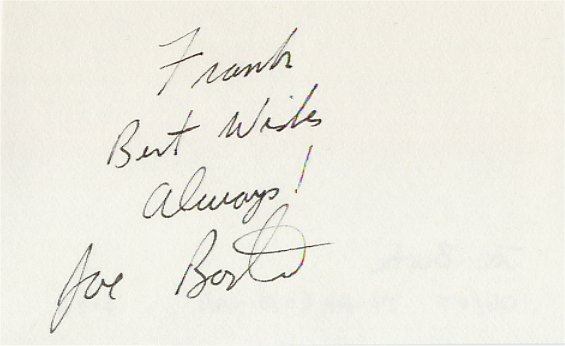 Frank
Best Wishes
Always!
Joe